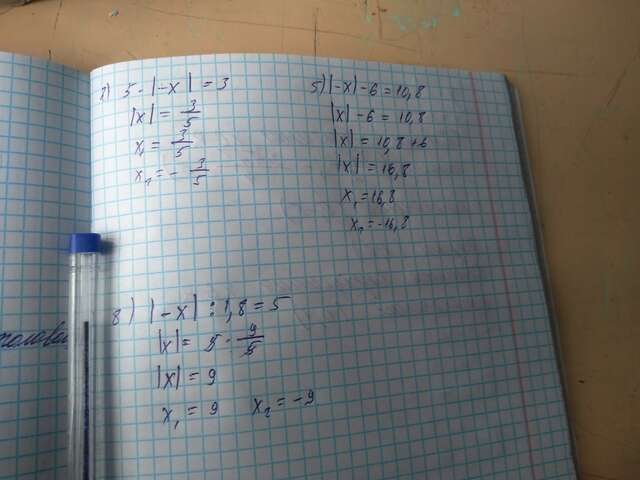 2) 5 · |-x| = 3
|x| = 3/5
x₁ = 3/5
x₂ = - 3/5
5) |-x| - 6 = 10,8
|x| - 6 = 10,8
|x| = 10,8 + 6
|x| = 16,8
x₁ = 16,8
x₂ = -16,8
8) |-x| : 1,8 = 5
|x| = 5 · 9/5
|x| = 9
x₁ = 9 x₂ = -9